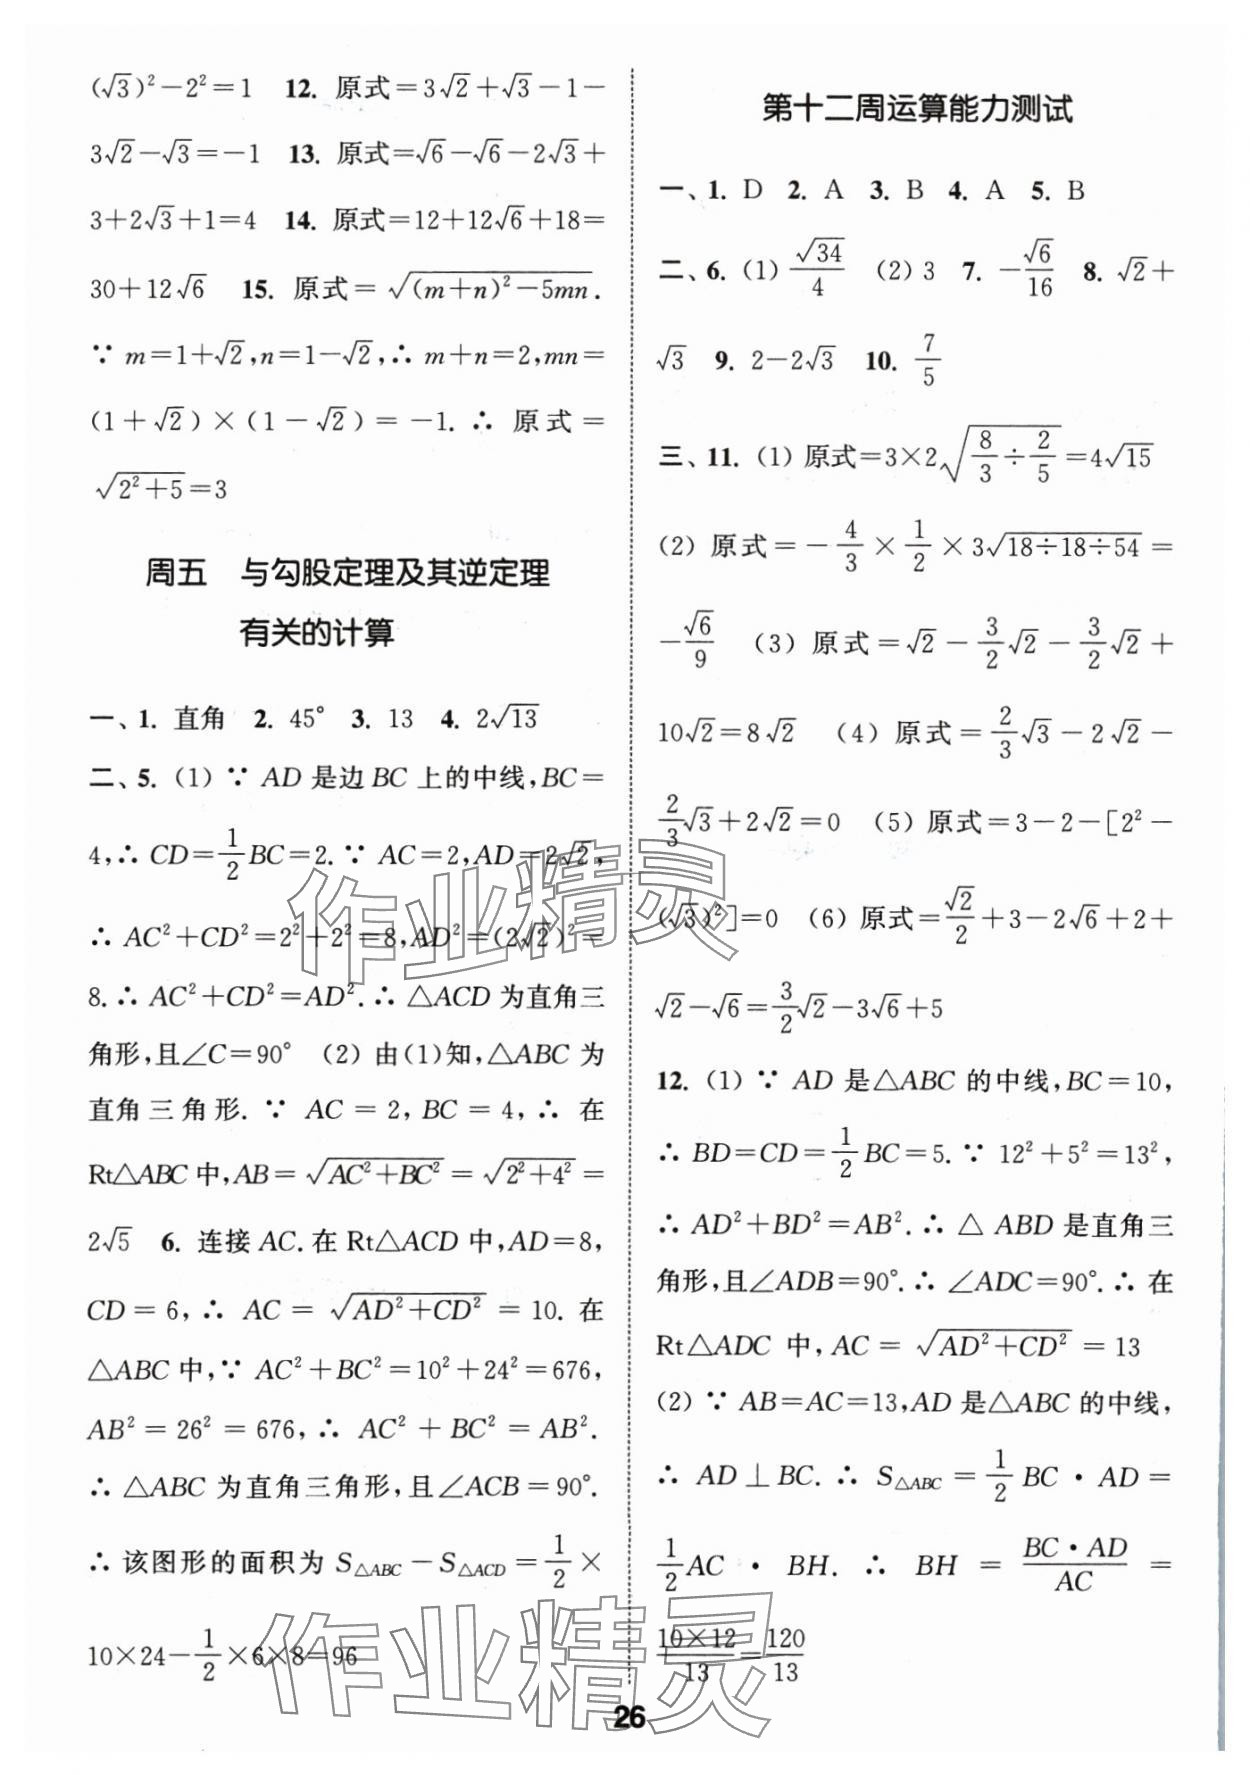 (√3)²－2²＝1　12. 原式＝3√2＋√3－1－
3√2－√3＝－1　13. 原式＝√6－√6－2√3＋
3＋2√3＋1＝4　14. 原式＝12＋12√6＋18＝
30＋12√6　15. 原式＝√((m＋n)²－5mn).
∵ m＝1＋√2,n＝1－√2,∴ m＋n＝2,mn＝
(1＋√2)×(1－√2)＝－1.∴ 原式＝
√(2²＋5)＝3
周五　与勾股定理及其逆定理
有关的计算
一、1. 直角　2. 45°　3. 13　4. 2√13
二、5. (1) ∵ AD 是边 BC 上的中线,BC＝
4,∴ CD＝1/2 BC＝2.∵ AC＝2,AD＝2√2,
∴ AC²＋CD²＝2²＋2²＝8,AD²＝(2√2)²＝
8.∴ AC²＋CD²＝AD².∴ △ACD 为直角三
角形,且∠C＝90°　(2) 由(1)知,△ABC 为
直角三角形.∵ AC＝2,BC＝4,∴ 在
Rt△ABC 中,AB＝√(AC²＋BC²)＝√(2²＋4²)＝
2√5　6. 连接 AC.在 Rt△ACD 中,AD＝8,
CD＝6,∴ AC＝√(AD²＋CD²)＝10.在
△ABC 中,∵ AC²＋BC²＝10²＋24²＝676,
AB²＝26²＝676,∴ AC²＋BC²＝AB².
∴ △ABC 为直角三角形,且∠ACB＝90°.
∴ 该图形的面积为 S△ABC－S△ACD＝1/2×
10×24－1/2×6×8＝96
第十二周运算能力测试
一、1. D　2. A　3. B　4. A　5. B
二、6. (1) √34/4　(2) 3　7. －√6/16　8. √2＋
√3　9. 2－2√3　10. 7/5
三、11. (1) 原式＝3×2√(8/3÷2/5)＝4√15
(2) 原式＝－4/3×1/2×3√(18÷18÷54)＝
－√6/9　(3) 原式＝√2－3/2√2－3/2√2＋
10√2＝8√2　(4) 原式＝2/3√3－2√2－
2/3√3＋2√2＝0　(5) 原式＝3－2－[2²－
(√3)²]＝0　(6) 原式＝√2/2＋3－2√6＋2＋
√2－√6＝3/2√2－3√6＋5
12. (1) ∵ AD 是△ABC 的中线,BC＝10,
∴ BD＝CD＝1/2 BC＝5.∵ 12²＋5²＝13²,
∴ AD²＋BD²＝AB².∴ △ABD 是直角三
角形,且∠ADB＝90°.∴ ∠ADC＝90°.∴ 在
Rt△ADC 中,AC＝√(AD²＋CD²)＝13
(2) ∵ AB＝AC＝13,AD 是△ABC 的中线,
∴ AD⊥BC.∴ S△ABC＝1/2 BC・AD＝
1/2 AC・BH.∴ BH＝BC・AD/AC＝
10×12/13＝120/13
26
作业精灵
作业精灵